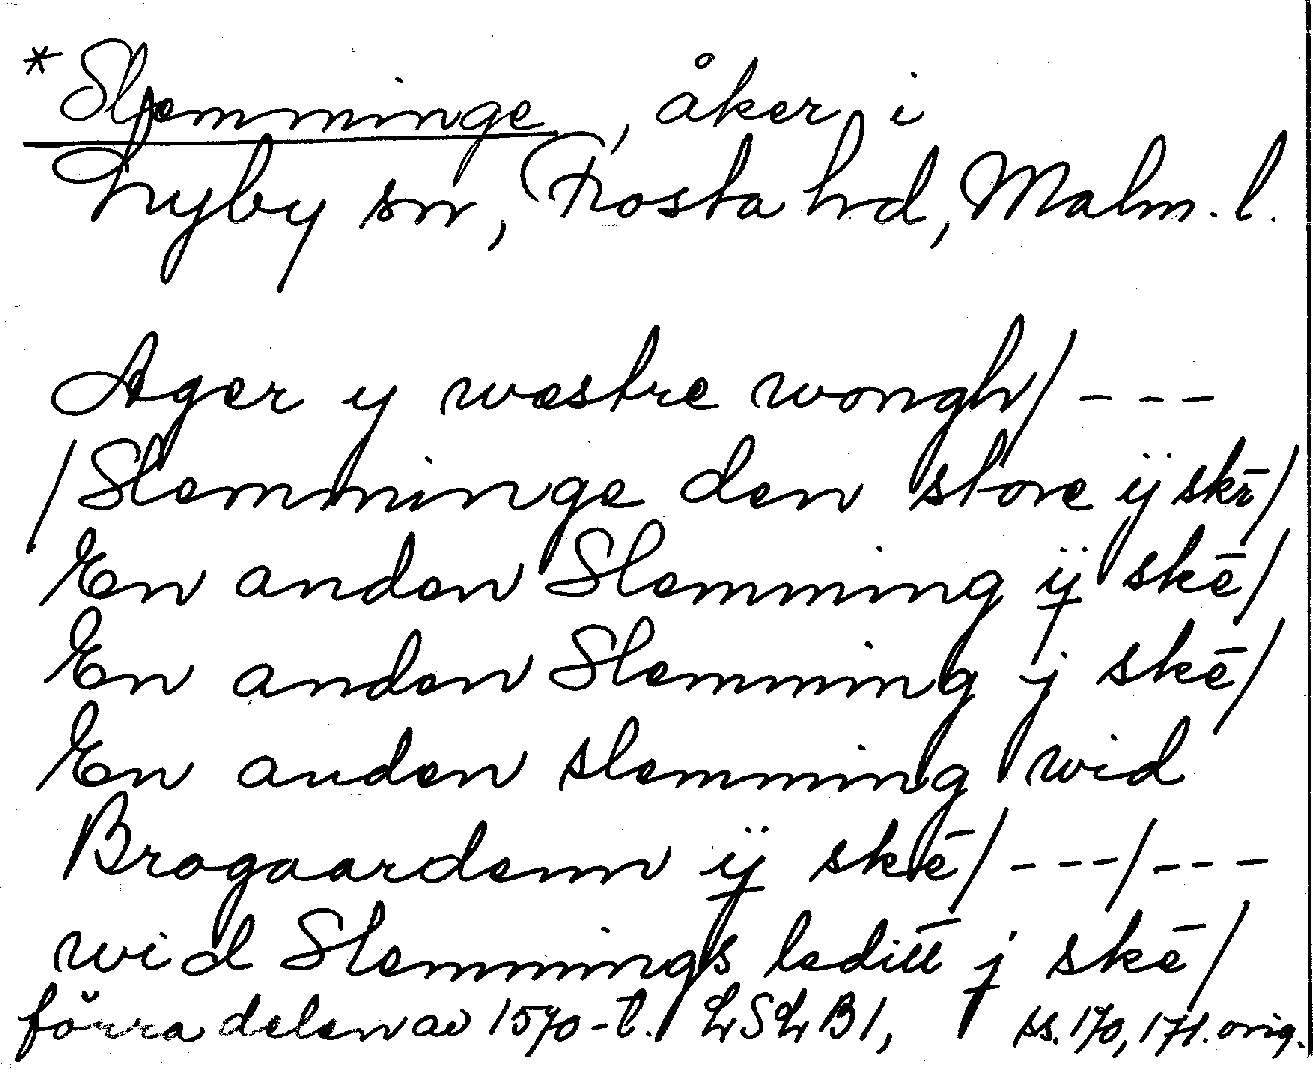 *Slemminge, åker i
Lyby sn, Frosta hd, Malm. l.
Ager y wæstre wongh/ - - -
/Slemminge den store ÿ skē/
En anden Slemming ÿ skē/
En anden Slemming j skē/
En anden slemming wid
Brogaardenn ÿ skē/ - - - / - - -
wid Slemmings leditt j skē/
förra delen av 1570-t. LSLB1, ss. 170, 171. orig.